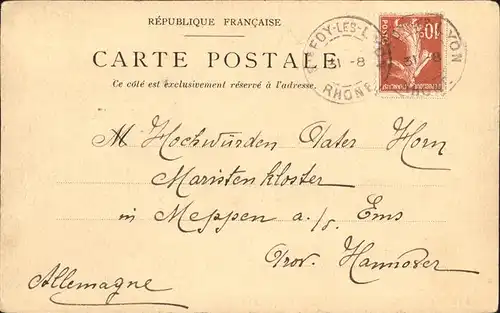 RÉPUBLIQUE FRANÇAISE
CARTE POSTALE
Ce côté est exclusivement réservé à l'adresse.
FOY-LES-L
31 -8
RHONE
YON
31 -8
10c
POSTES
REPUBLIQUE FRANÇAISE
M Hochwürden Pater Horn
Maristenkloster
in Meppen a./d. Ems
Prov. Hannover
Allemagne